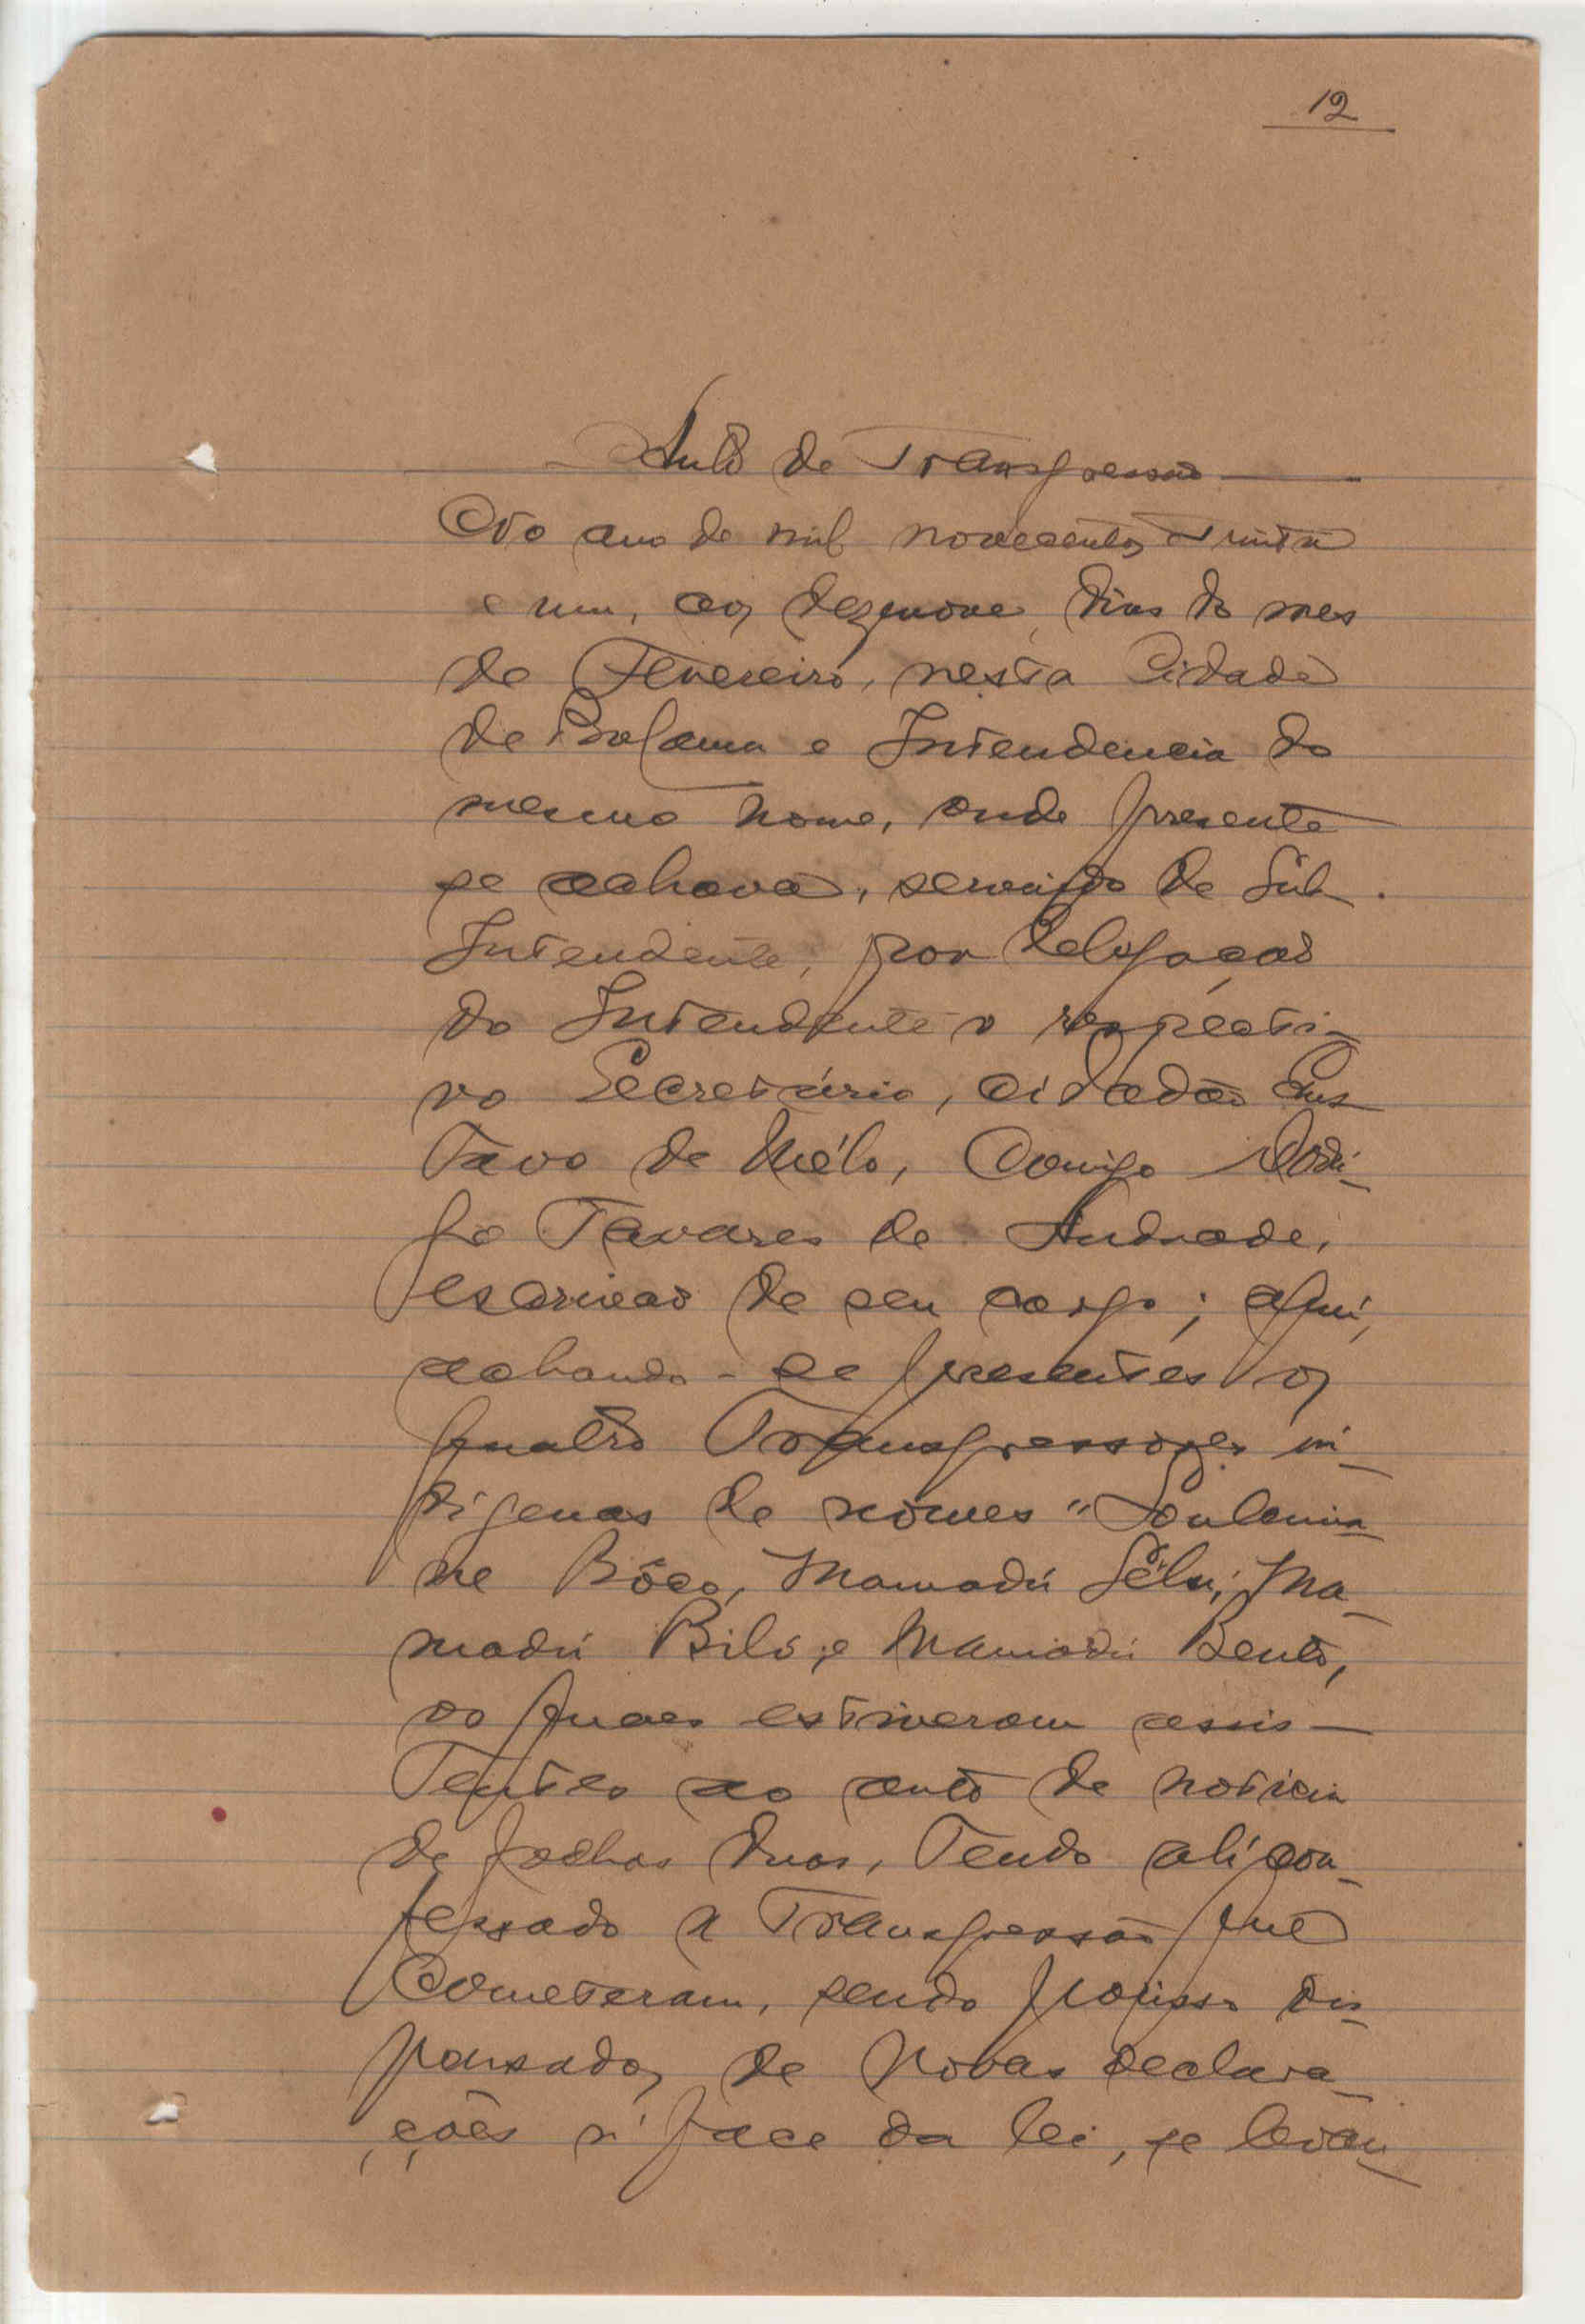 12
Auto de Transgressão
No ano de mil novecentos trinta
e um, aos dezenove dias do mes
de Fevereiro, nesta Cidade
de Bolama e Intendencia do
mesmo nome, onde presente
se achava, servindo de Sub
Intendente, por delegação
do Intendente o respecti-
vo Secretário, cidadão Gus-
tavo de Mélo, Comigo Rodri-
go Tavares de Andrade,
escrivão de seu cargo; aqui,
achando-se presentes os
quatro Transgressores in-
digenas de nomes "Souleima-
ne Bóco, Mamadú Sélu, Ma-
madú Biló, e Mamadú Bentó,
os quaes estiveram assis-
tentes ao auto de noticia
de folhas duas, tendo ali con-
fessado a Transgressão que
Cometeram, sendo porisso dis-
pensados de novas declara-
ções á face da lei, se levan-